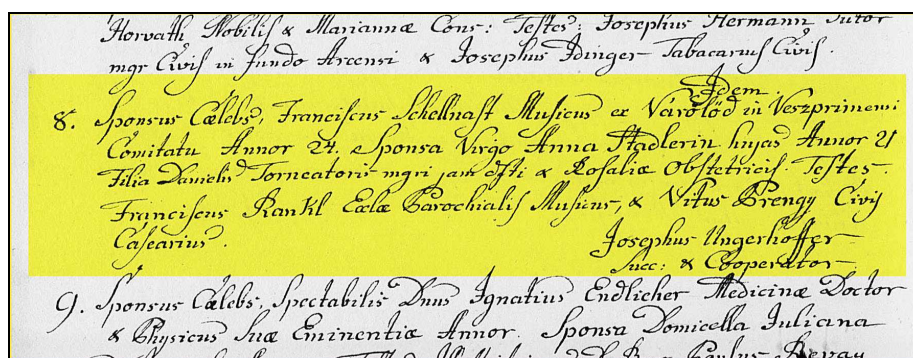 Horvath Nobilis & Mariannæ Cons: Testes: Josephus Hermann Sutor
mgr Civis in fundo Arcensi & Josephus Idinger Tabacarius Civis.
Idem.
8. Sponsus Cælebs, Franciscus Schellnast Musicus ex Városlöd in Veszprimiensi
Comitatu Annor 24. Sponsa Virgo Anna Stadlerin hujas Annor 21
Filia Danielis Torneatoris mgri jam dfti & Rosaliæ Obstetricis. Testes.
Franciscus Rankl Eclæ Parochialis Musicus, & Vitus Prengy Civis
Casearius.
Josephus Ungerhoffer
Succ: & Cooperator
9. Sponsus Cælebs, Spectabilis Dnus Ignatius Endlicher Medicinæ Doctor
& Physicus Suæ Eminentiæ Annor. Sponsa Domicella Juliana